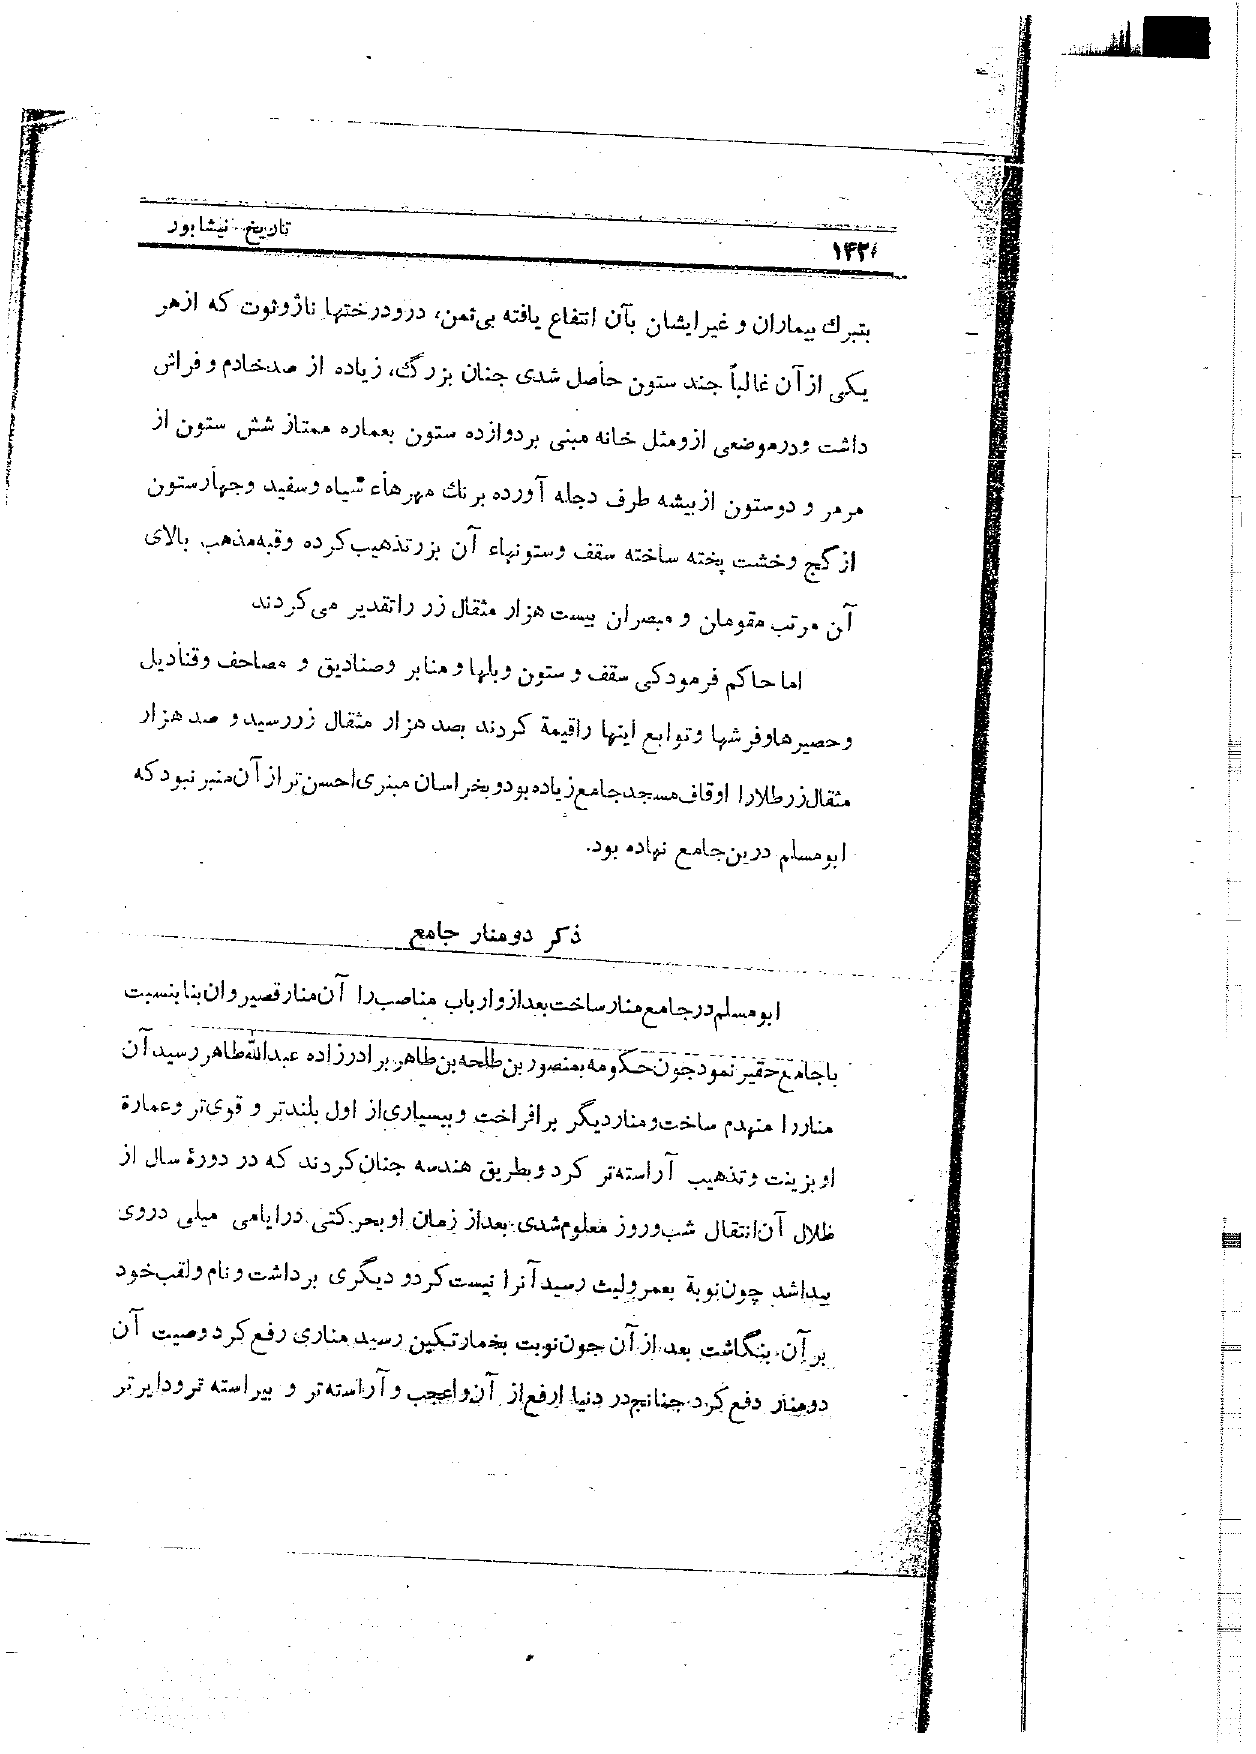 تاریخ نیشابور
۱۴۲
بتبرك بیماران و غیرایشان بآن انتفاع یافته بی‌ثمن، درودرختها ناژوتوت که ازهر
یکی ازآن غالباً جند ستون حاصل شدی جنان بزرگ، زیاده از صدخادم وفراش
داشت ودرموضعی ازومثل خانه مبنی بردوازده ستون بعماره ممتاز شش ستون از
مرمر و دوستون ازبیشه طرف دجله آورده برنك مهرهاء سیاه وسفید وجهارستون
ازگج وخشت پخته ساخته سقف وستونهاء آن بزرتذهیب‌کرده وقبه‌مذهب بالای
آن مرتب مقومان و مبصران بیست هزار مثقال زر راتقدیر می‌کردند
اما حاکم فرمودکی سقف و ستون وبلها و منابر وصنادیق و مصاحف وقنادیل
وحصیرهاوفرشها وتوابع اینها راقیمة کردند بصد هزار مثقال زررسید و صد هزار
مثقال‌زرطلارا اوقاف‌مسجدجامع‌زیاده‌بودوبخراسان منبری‌احسن‌تراز‌آن‌منبر‌نبودکه
ابومسلم درین‌جامع نهاده بود.
ذکر دومنار جامع
ابومسلم‌درجامع‌منارساخت‌بعدازوارباب مناصب‌را آن‌منارقصیروان‌بنابنسبت
باجامع‌حقیرنمودجون‌حکومه‌بمنصوربن‌طلحه‌بن‌طاهربرادرزاده عبدالله‌طاهررسیدآن
مناررا منهدم ساخت‌ومناردیگر برافراخت وبیسیاری‌از اول بلندتر و قوی‌تر وعمارة
اوبزینت وتذهیب آراسته‌تر کرد وبطریق هندسه جنان‌کردند که در دورهٔ سال از
ظلال آن‌انتقال شب‌وروز معلوم‌شدی بعداز زمان اوبحرکتی درایامی میلی دروی
بیداشد چون‌نوبة بعمرولیث رسیدآنرا نیست‌کردو دیگری برداشت ونام ولقب‌خود
برآن بنگاشت بعد ازآن جون‌نوبت بخمارتکین رسید مناری رفع‌کرد وصیت آن
دومنار دفع‌کرد جنانج‌در دنیا ارفع‌از آن‌واعجب وآراسته‌تر و بیراسته ترودایرتر